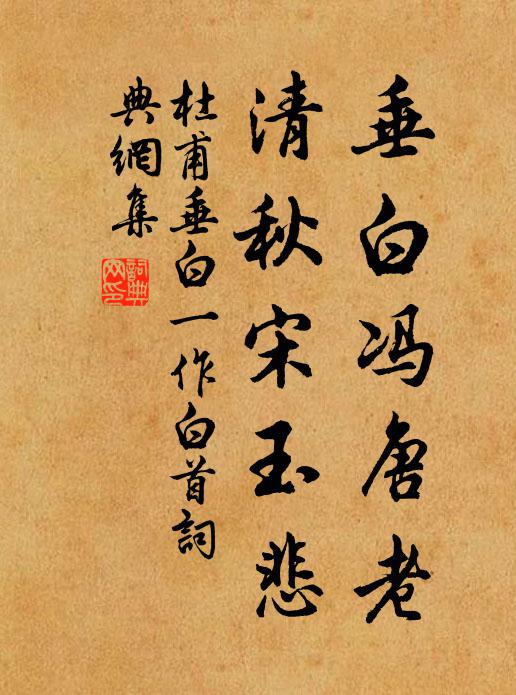 垂白冯唐老
清秋宋玉悲
杜甫垂白一作白首詞
典網集
詞典網印